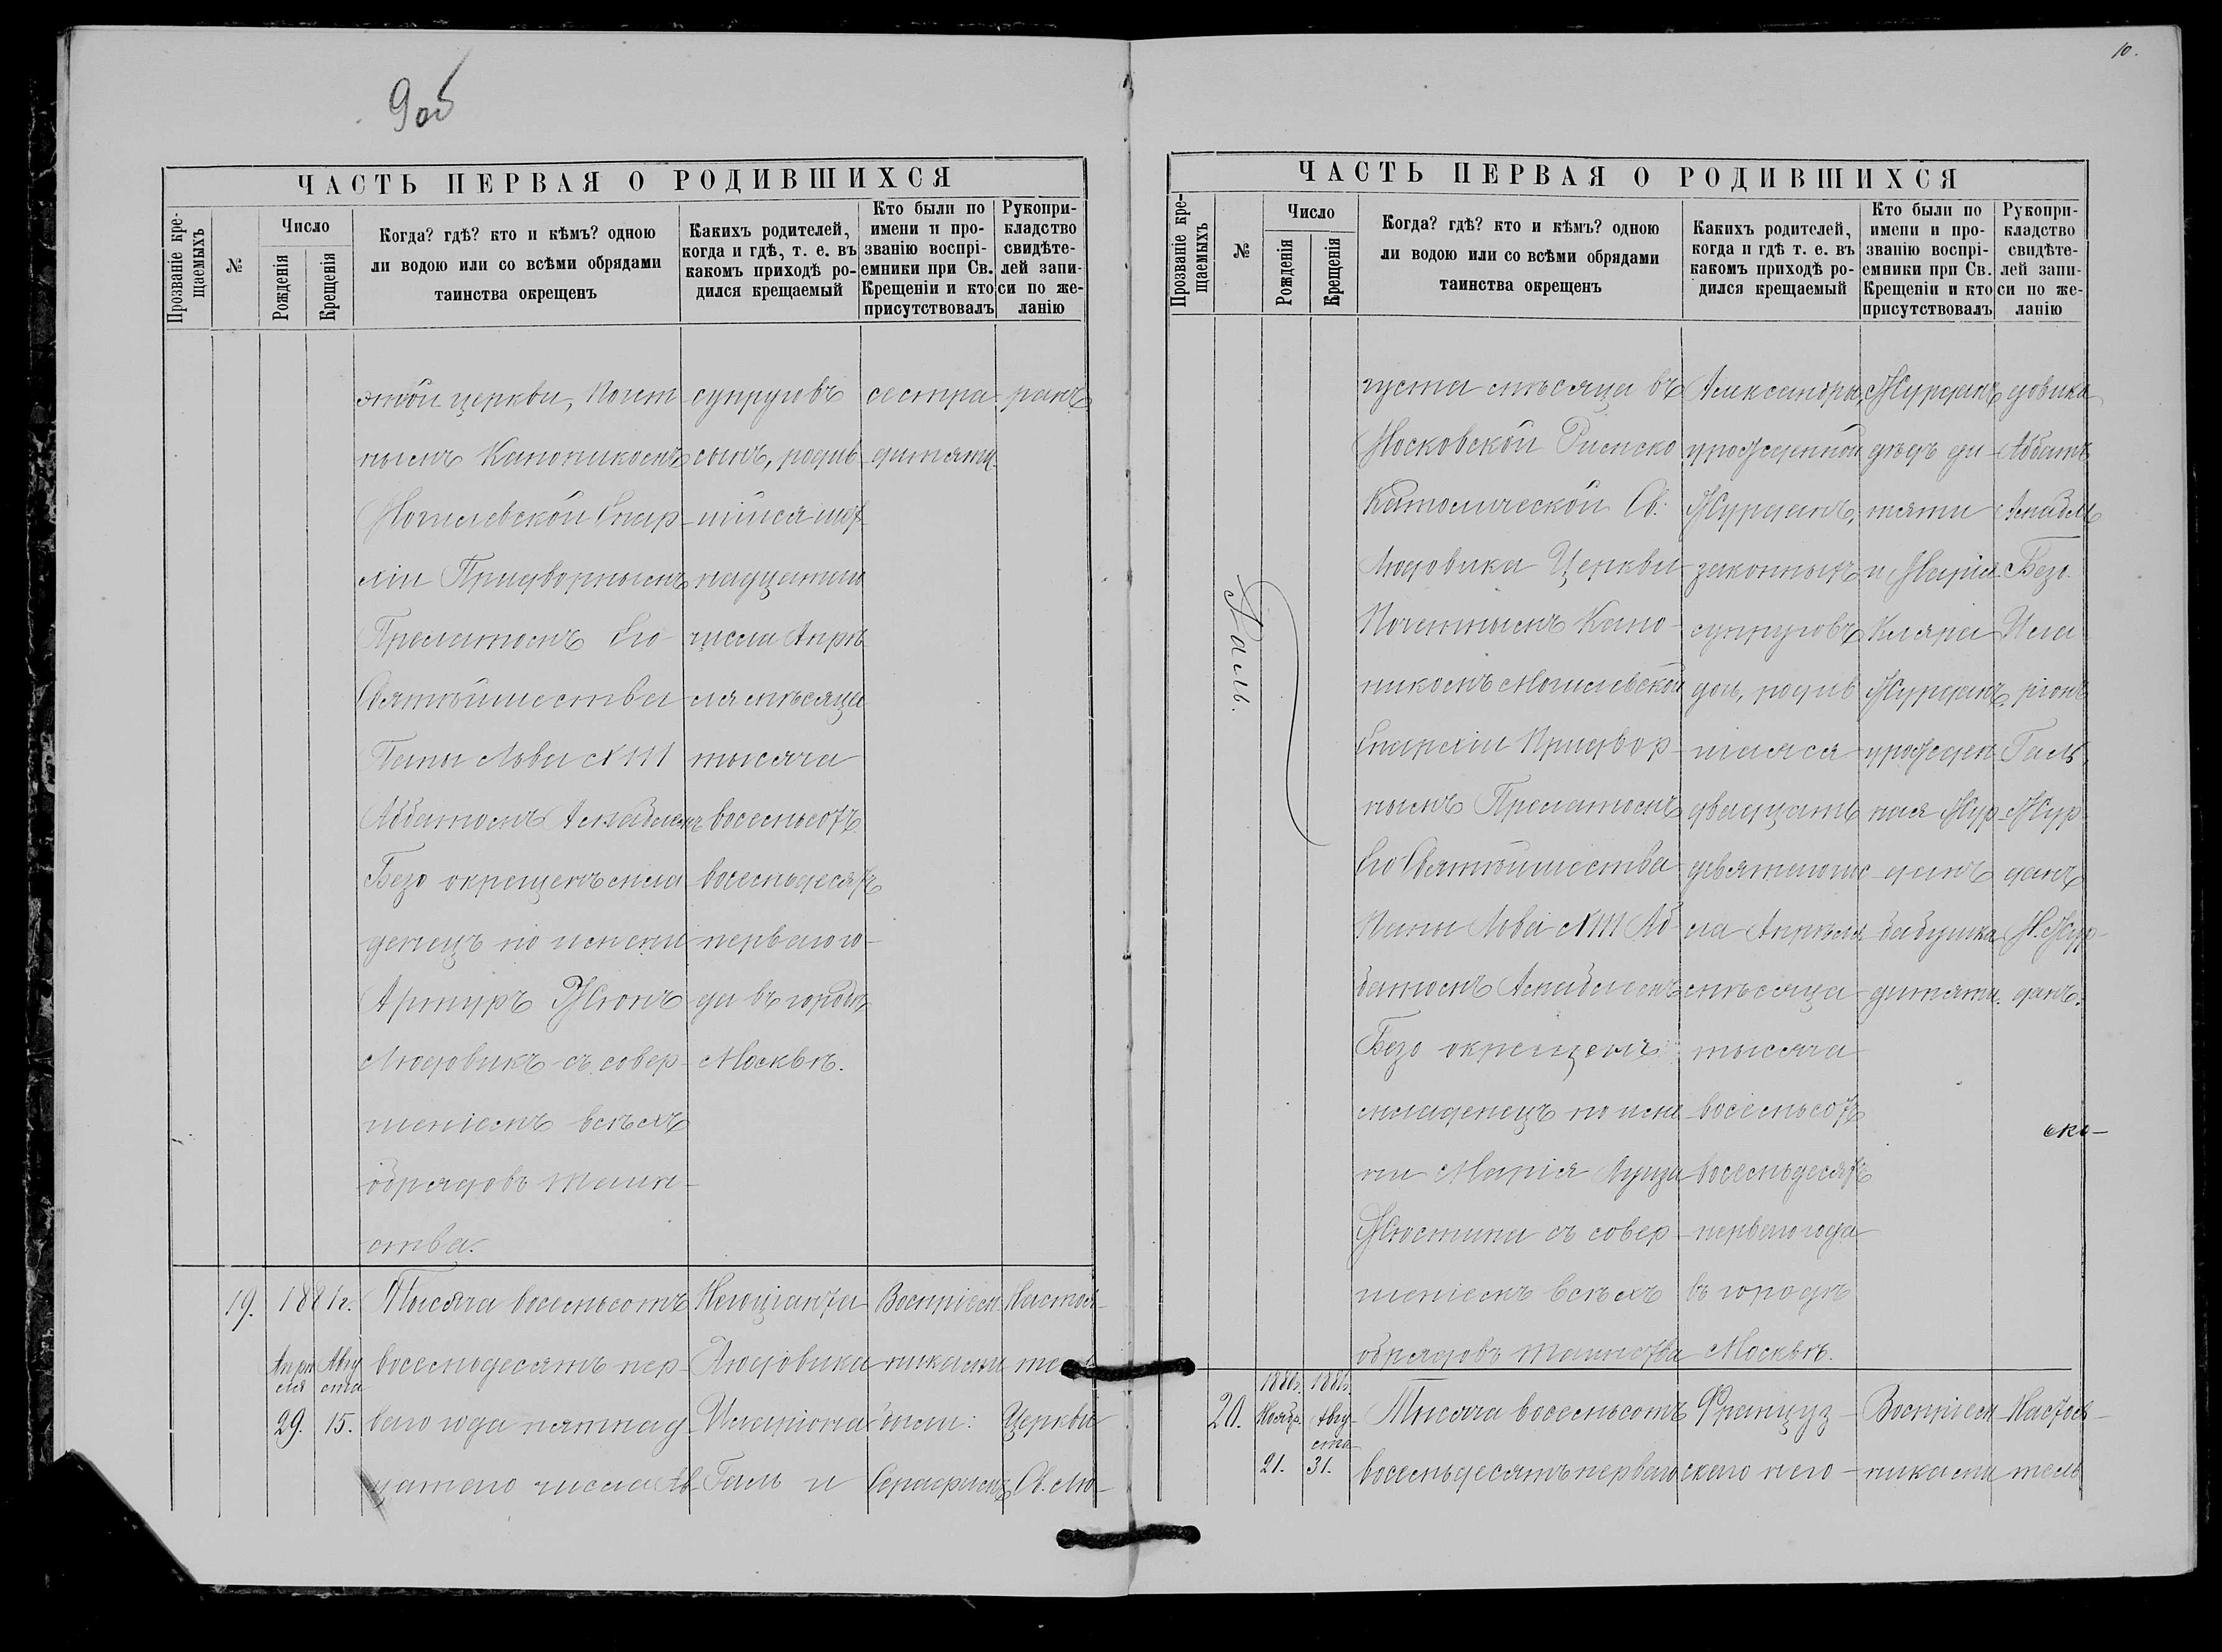 9об
ЧАСТЬ ПЕРВАЯ О РОДИВШИХСЯ
Прозваніе кре-
щаемыхъ
№
Число
Рожденія
Крещенія
Когда? гдѣ? кто и кѣмъ? одною
ли водою или со всѣми обрядами
таинства окрещенъ
Какихъ родителей,
когда и гдѣ, т. е. въ
какомъ приходѣ ро-
дился крещаемый
Кто были по
имени и про-
званію воспрі-
емники при Св.
Крещеніи и кто
присутствовалъ
Рукопри-
кладство
свидѣте-
лей запи-
си по же-
ланію
этой церкви, Почет
нымъ Каноникомъ
Могилевской Епар-
хіи Придворнымъ
Прелатомъ Его
Святѣйшества
Папы Льва XIII
Аббатомъ
Безо окрещенъ мла
денецъ по имени
Артуръ Жюнъ
Людовикъ съ совер-
шеніемъ всѣхъ
обрядовъ таин-
ства.
супруговъ
сынъ, родив-
шійся шест
надцатаго
числа Апрѣ
ля мѣсяца
тысяча
восемьсотъ
восемьдесятъ
перваго го-
да въ городѣ
Москвѣ.
сестра
дитяти
ранъ
19.
1881г.
Апрѣ
ля
29.
Авгу
ста
15.
Тысяча восемьсотъ
восемьдесятъ пер-
ваго года пятнад-
цатаго числа Ав-
Негоціанта
Людовика
Илларіона
Галь и
Воспріем-
никами
были:
Серафимъ
Настоя-
тель
Церкви
Св. Лю-
10.
ЧАСТЬ ПЕРВАЯ О РОДИВШИХСЯ
Прозваніе кре-
щаемыхъ
№
Число
Рожденія
Крещенія
Когда? гдѣ? кто и кѣмъ? одною
ли водою или со всѣми обрядами
таинства окрещенъ
Какихъ родителей,
когда и гдѣ т. е. въ
какомъ приходѣ ро-
дился крещаемый
Кто были по
имени и про-
званію воспрі-
емники при Св.
Крещеніи и кто
присутствовалъ
Рукопри-
кладство
свидѣте-
лей запи-
си по же-
ланію
Галь.
густа мѣсяца въ
Московской Римско
Католической Св.
Людовика Церкви
Почетнымъ Кано-
никомъ Могилевской
Епархіи Придвор-
нымъ Прелатомъ
Его Святѣйшества
Папы Льва XIII Аб-
батомъ
Безо окрещенъ
младенецъ по име
ни Марія Луиза
Жюстина съ совер-
шеніемъ всѣхъ
обрядовъ таинства
Александры,
урожденной
Журданъ,
законныхъ
супруговъ
дочь, родив
шаяся
двадцать
девятаго чис
ла Апрѣля
мѣсяца
тысяча
восемьсотъ
восемьдесятъ
перваго года
въ городѣ
Москвѣ.
Журданъ
дѣдъ ди-
тяти
и Марія
Клара
Журданъ,
урожден-
ная Жур-
данъ
бабушка
дитяти.
довика
Аббатъ
Безо.
Илла
ріонъ
Галь,
Жур-
данъ
Журданъ.
ско-
20.
1880г.
Ноябр.
21.
1881г.
Авгу-
ста
31.
Тысяча восемьсотъ
восемьдесятъ перваго
Француз-
скаго него-
Воспріем-
никами
Настоя-
тель